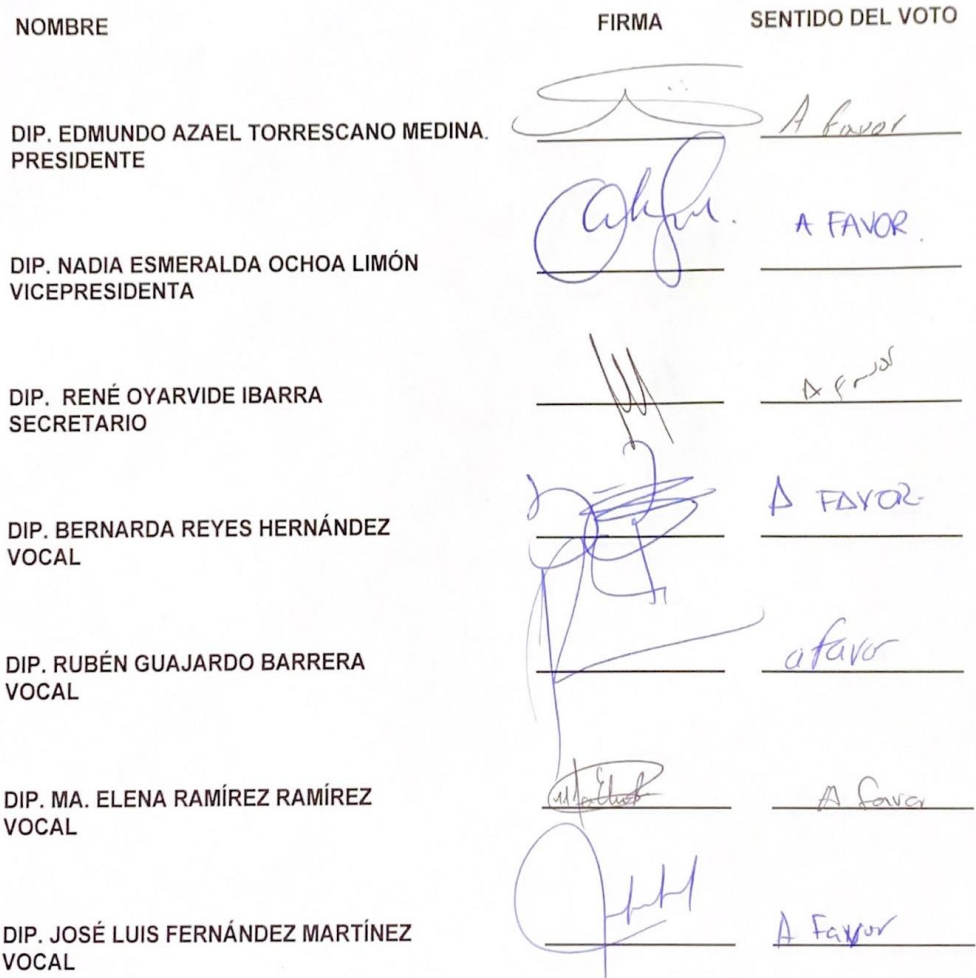 NOMBRE FIRMA SENTIDO DEL VOTO
DIP. EDMUNDO AZAEL TORRESCANO MEDINA. A favor
PRESIDENTE
A FAVOR.
DIP. NADIA ESMERALDA OCHOA LIMÓN
VICEPRESIDENTA
DIP. RENÉ OYARVIDE IBARRA A Favor
SECRETARIO
A FAVOR
DIP. BERNARDA REYES HERNÁNDEZ
VOCAL
DIP. RUBÉN GUAJARDO BARRERA a favor
VOCAL
DIP. MA. ELENA RAMÍREZ RAMÍREZ A favor
VOCAL
DIP. JOSÉ LUIS FERNÁNDEZ MARTÍNEZ A Favor
VOCAL